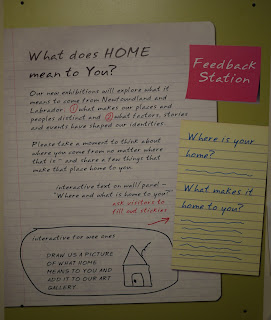 What does HOME
mean to You?
Our new exhibitions will explore what it
means to come from Newfoundland and
Labrador: ① what makes our places and
peoples distinct and ② what factors, stories
and events have shaped our identities.
Please take a moment to think about
where you come from no matter where
that is - and share a few things that
make that place home to you.
interactive text on wall/panel -
"Where and what is home to you?"
ask visitors to
fill out stickies
interactive for wee ones
DRAW US A PICTURE
OF WHAT HOME
MEANS TO YOU AND
ADD IT TO OUR ART
GALLERY
Feedback
Station
Where is your
home?
What makes it
home to you?